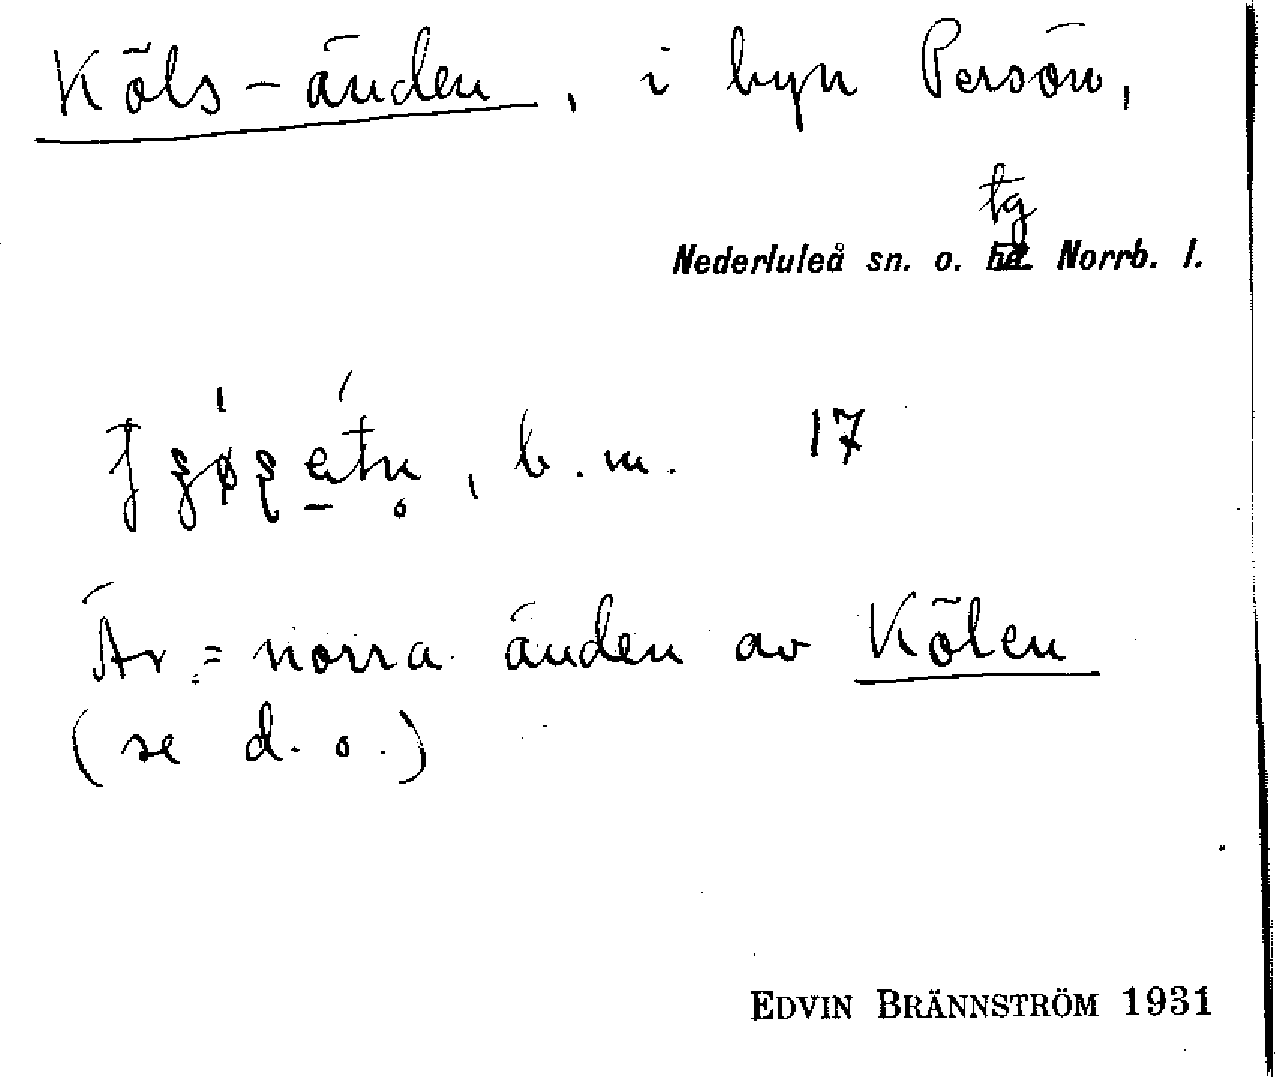 Köls-änden, i byn Persön,
tg
Nederluleå sn. o. Norrb. l.
, b. m. 17
Är = norra änden av Kölen
(se d. o.)
EDVIN BRÄNNSTRÖM 1931